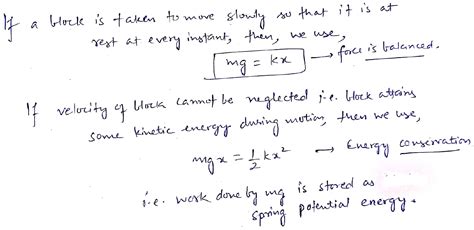 If a block is taken to move slowly so that it is at
rest at every instant, then, we use,
mg = kx → force is balanced.
If velocity of block cannot be neglected i.e. block attains
some kinetic energy during motion, then we use,
mgx = ½kx² → Energy conservation
i.e. work done by mg is stored as
spring potential energy.